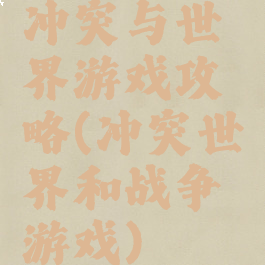 冲突与世
界游戏攻
略(冲突世
界和战争
游戏)